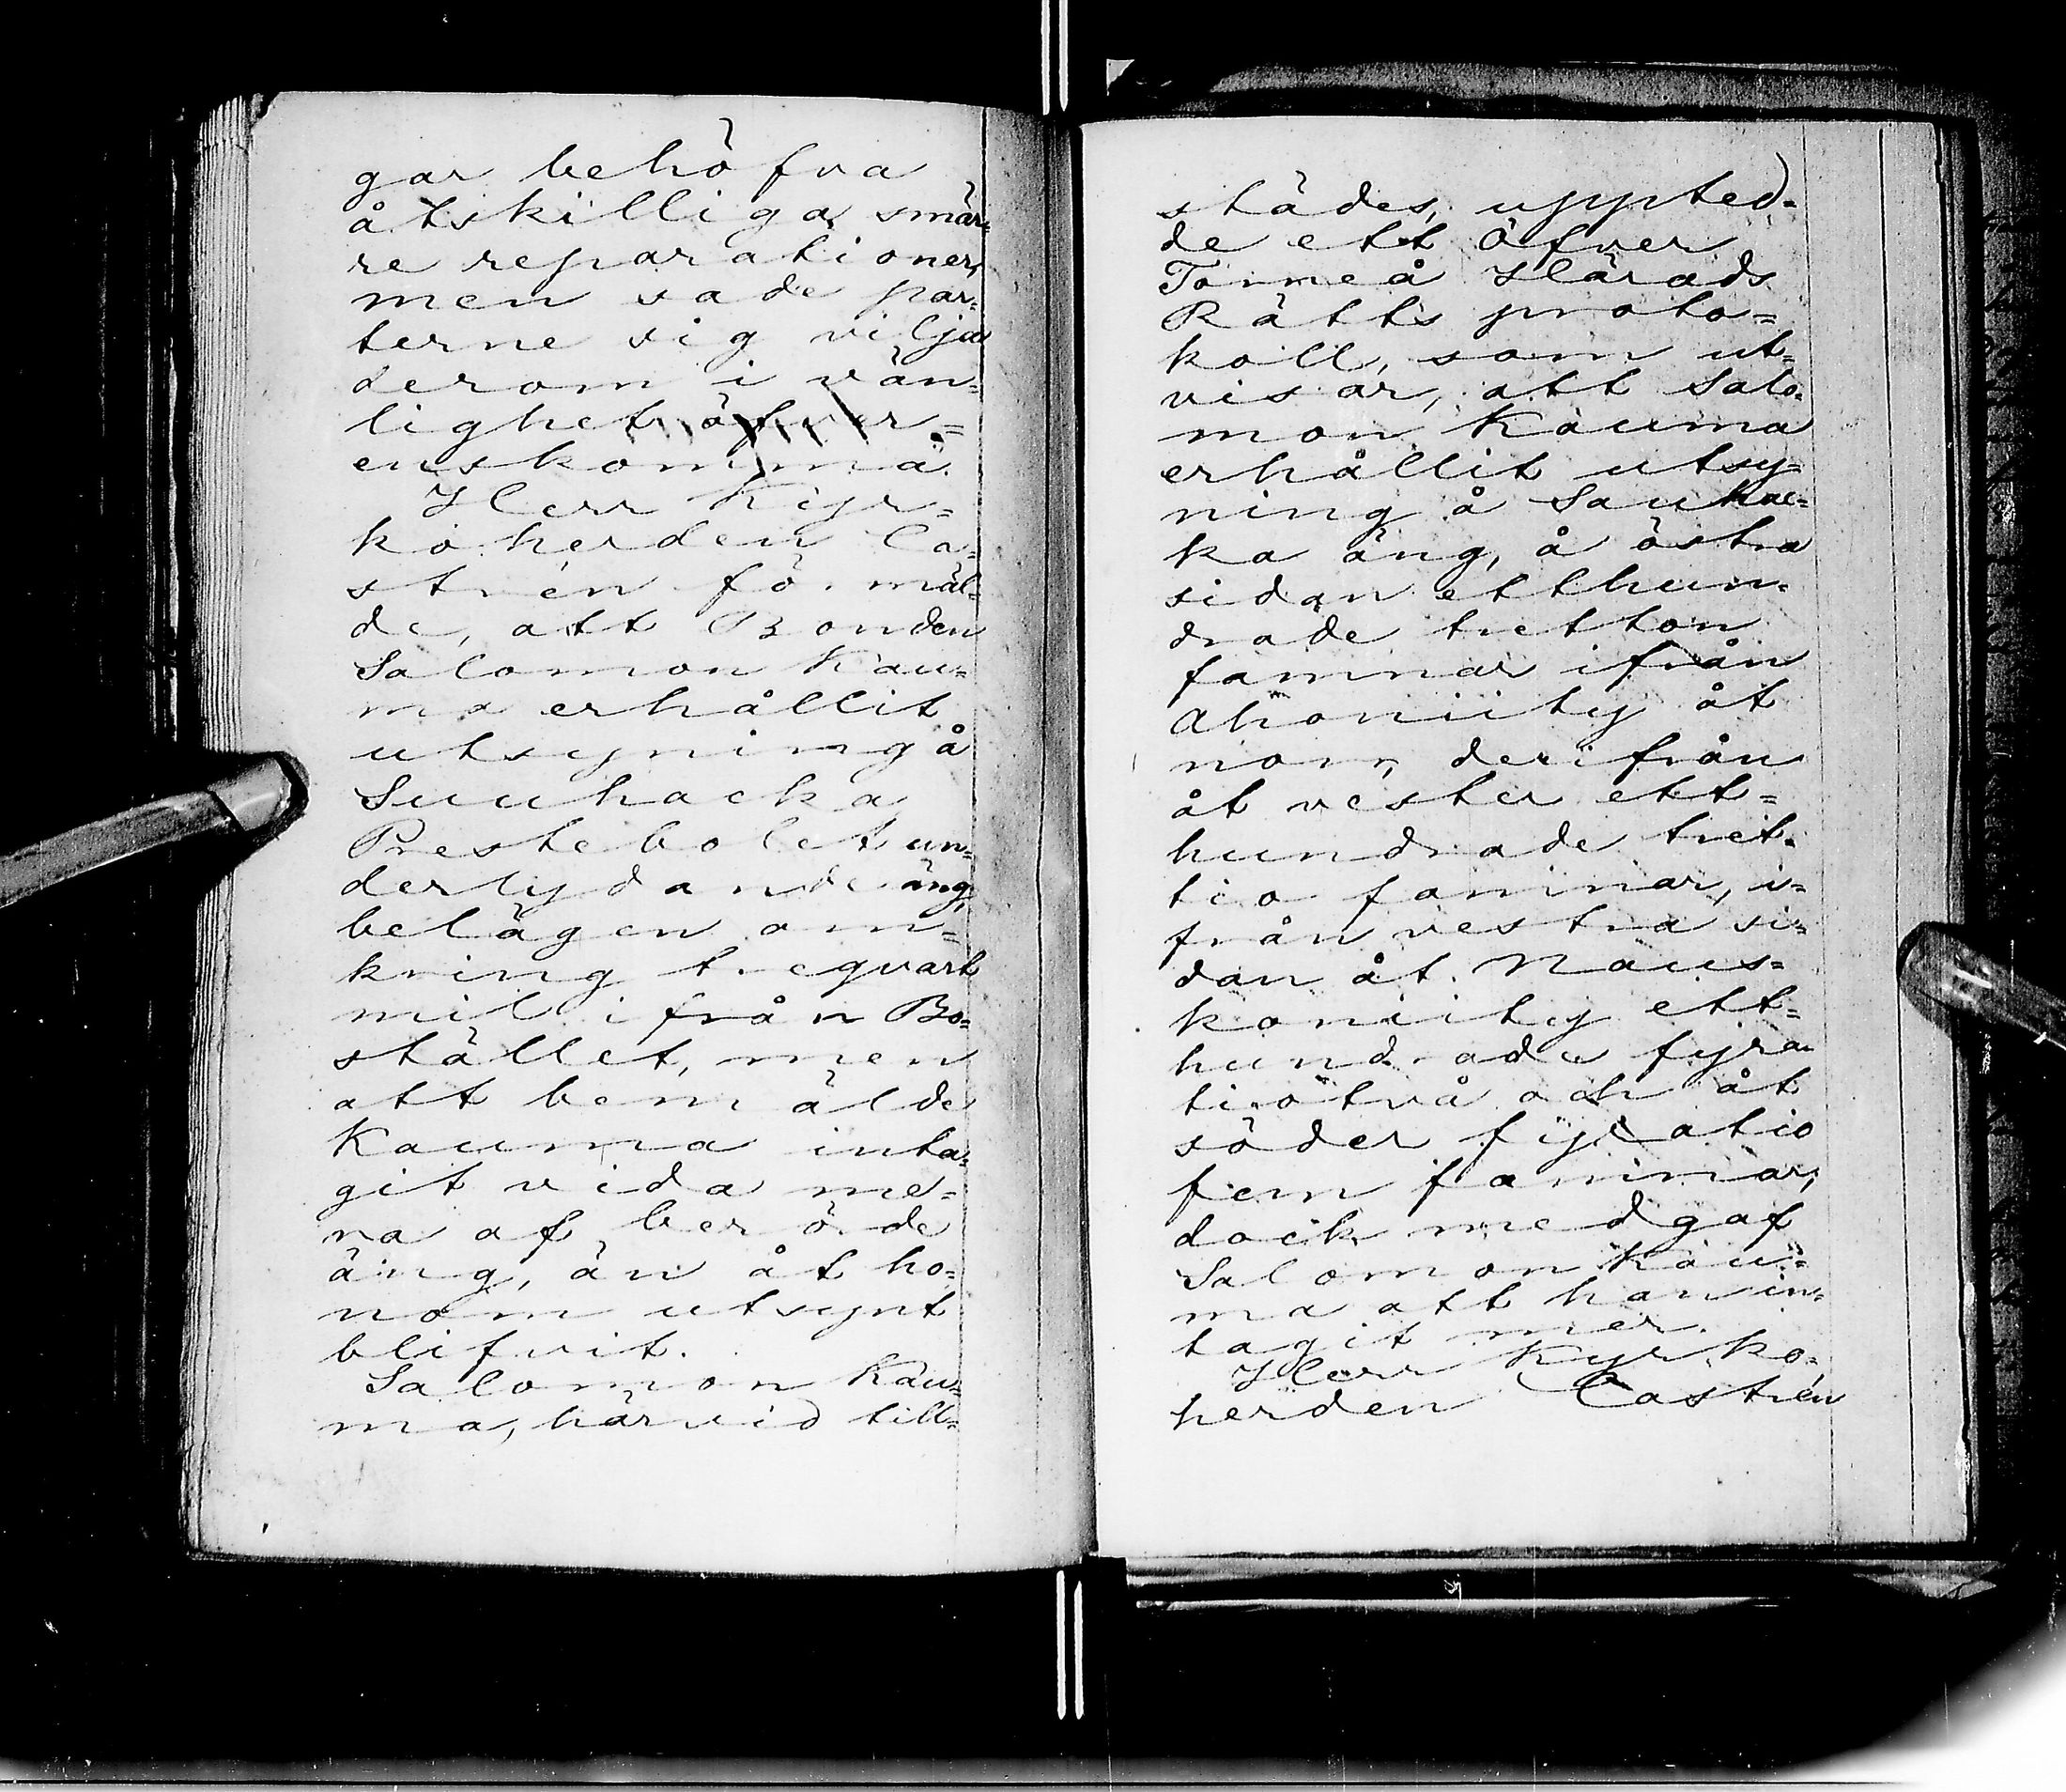 gar behöfva
åtskilliga smär=
re reparationer,
men sade par=
terne sig vilja
derom i vän=
lighet öfver=
enskomma.
Herr Kyr=
koherden Ca=
strén förmäl=
de, att Bonden
Salomon Kau=
ma erhållit
utsyning å
Suuhacka
Prestebolet un=
derlydande äng,
belägen om=
kring trequart
mil ifrån Bo=
stället, men
att bemälde
Kauma inta=
git vida me=
ra af berörde
äng, än åt ho=
nom utsynt
blifvit.
Salomon Kau=
ma, härvid till=
städes, uppted=
de ett Öfver
Torneå Härads
Rätts proto=
koll, som ut=
visar, att Salo=
mon Kauma
erhållit utsy=
ning å Sauhac=
ka äng, å östra
sidan etthun=
drade tretton
famnar ifrån
Ahoniity åt
norr, derifrån
åt vester ett=
hundrade tret=
tio famnar, i=
från vestra si=
dan åt Naus=
koniity ett=
hundrade fyra
tiotvå och åt
söder fyratio
fem famnar,
dock medgaf
Salomon Kau=
ma att han in=
tagit mer.
Herr Kyrko=
herden Castrén